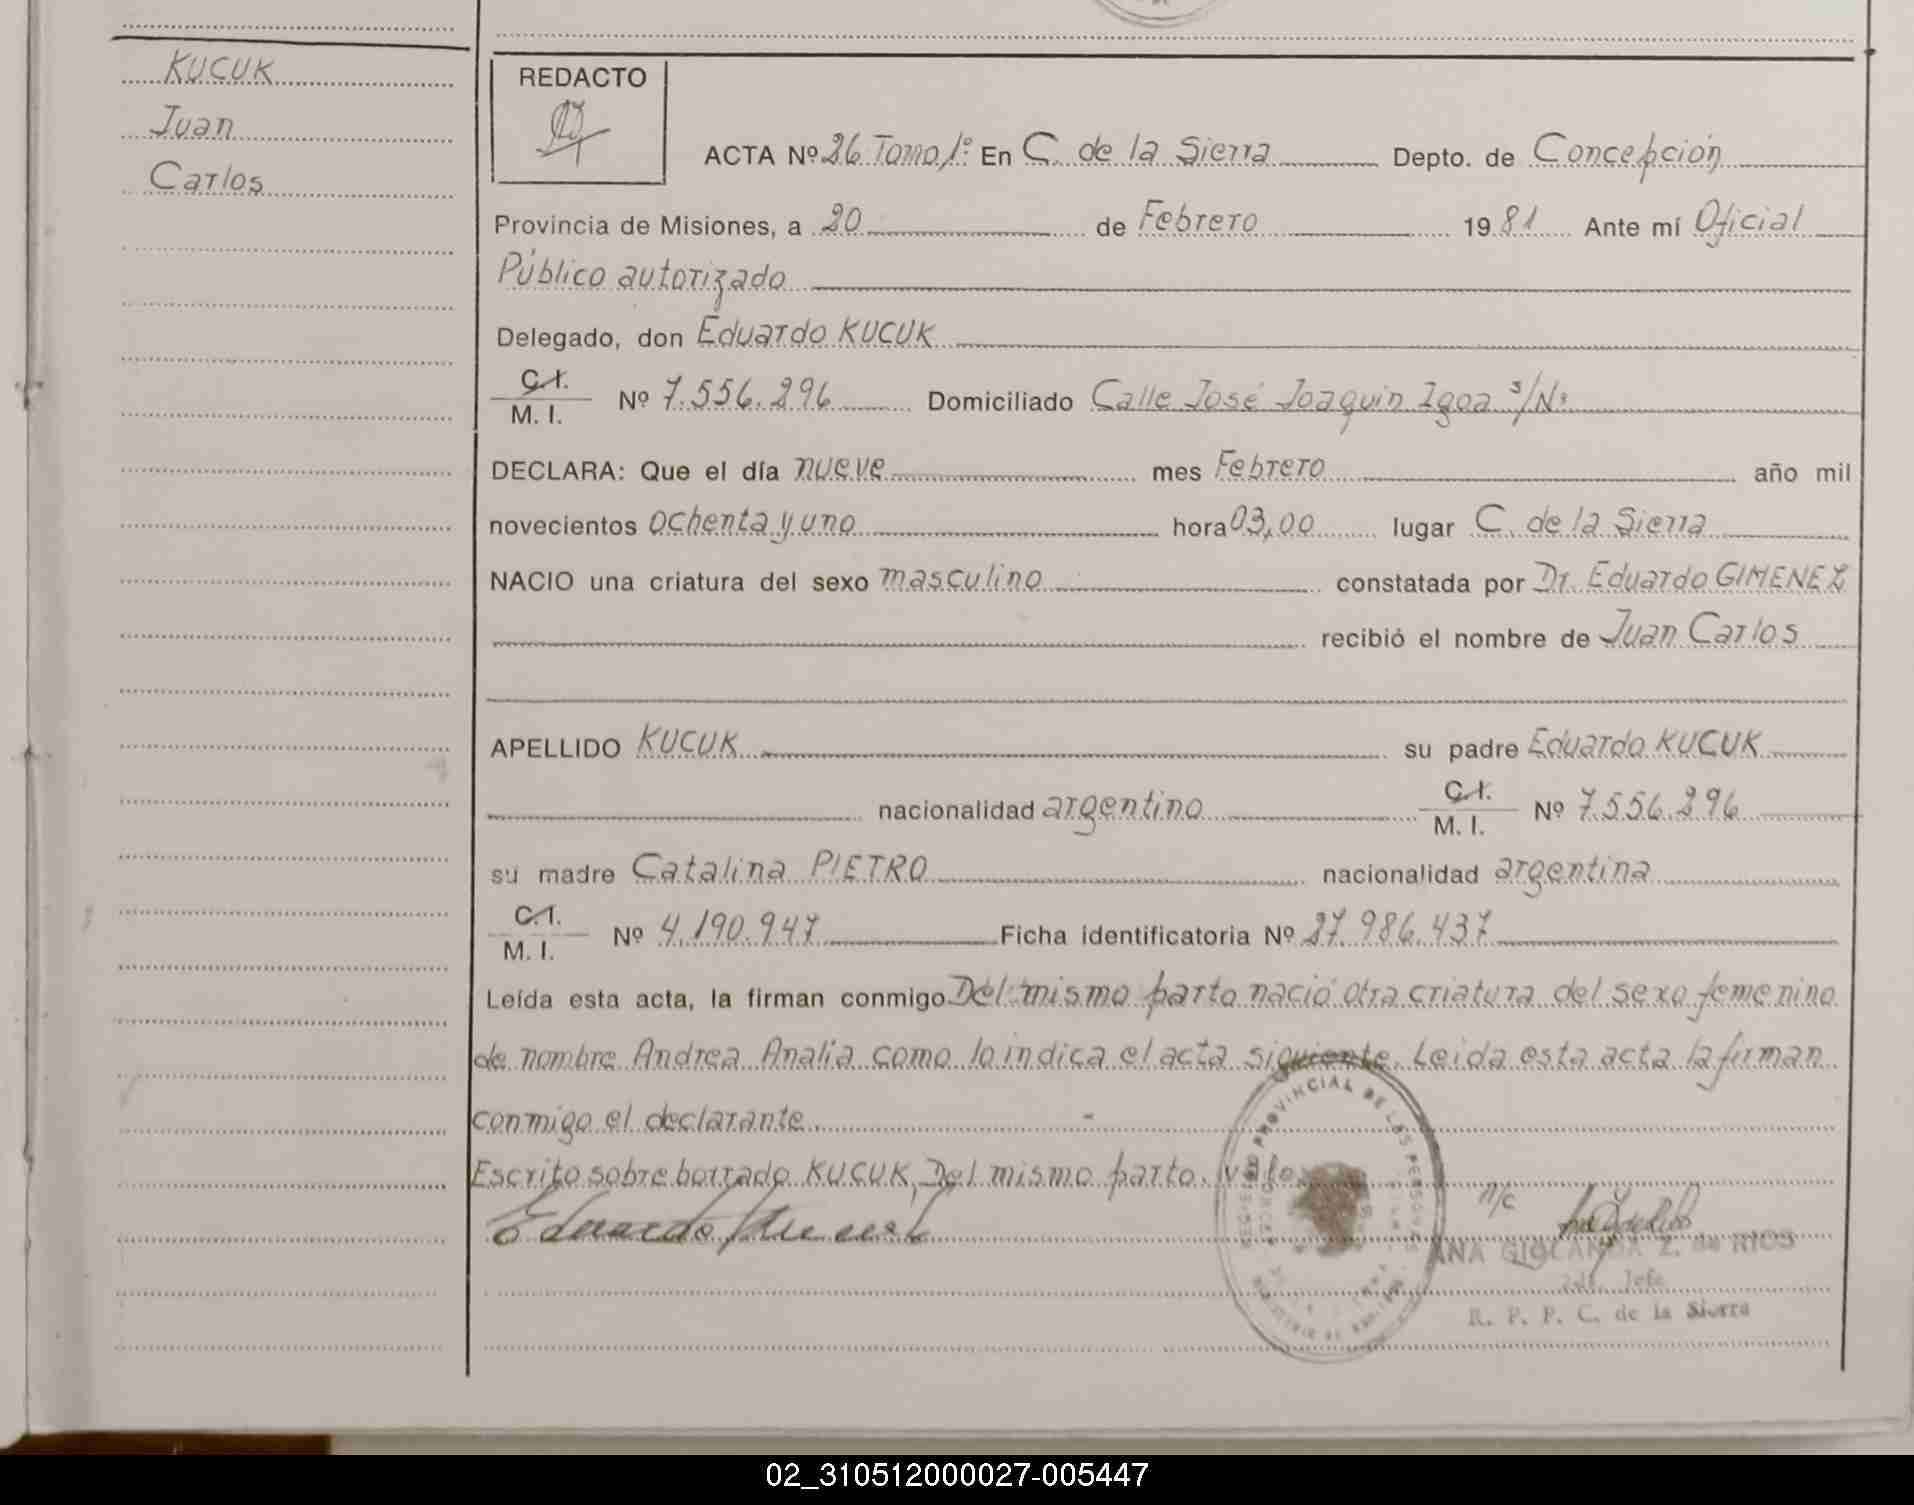 KUCUK
Juan
Carlos
REDACTO
ACTA Nº 26 Tomo 1º En C. de la Sierra Depto. de Concepción
Provincia de Misiones, a 20 de Febrero 1981 Ante mí Oficial
Público autorizado
Delegado, don Eduardo KUCUK
C.I.
M. I. Nº 7.556.296 Domiciliado Calle José Joaquin Igoa s/Nº
DECLARA: Que el día nueve mes Febrero año mil
novecientos ochenta y uno hora 03,00 lugar C. de la Sierra
NACIO una criatura del sexo masculino constatada por Dr. Eduardo GIMENEZ
recibió el nombre de Juan Carlos
APELLIDO KUCUK su padre Eduardo KUCUK
nacionalidad argentino C.I. M. I. Nº 7.556.296
su madre Catalina PIETRO nacionalidad argentina
C.I.
M. I. Nº 4.190.947 Ficha identificatoria Nº 27.986.437
Leída esta acta, la firman conmigo Del mismo parto nació otra criatura del sexo femenino
de nombre Andrea Analia como lo indica el acta siguiente. Leida esta acta la firman
conmigo el declarante
Escrito sobre borrado KUCUK, Del mismo parto. vale.
Eduardo Kucuk
PROVINCIAL DE LAS PERSONAS
ANA GIOLANDA Z. de RIOS
Jefe
R. P. P. C. de la Sierra
02_310512000027-005447